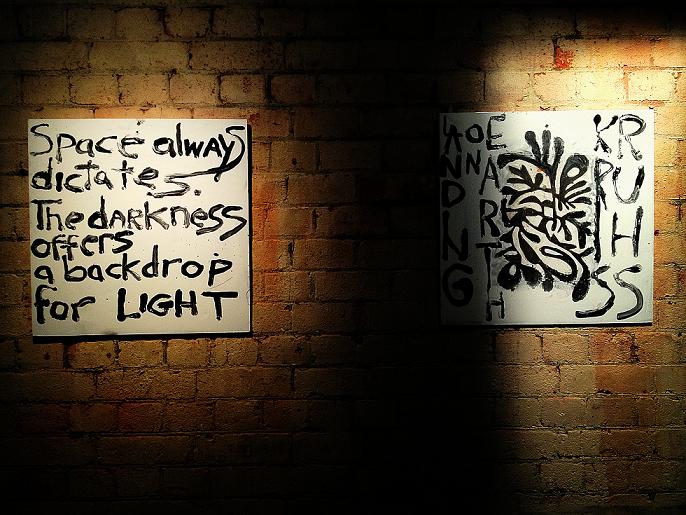 Space always
dictates.
The darkness
offers
a backdrop
for LIGHT
LANDING
ON
EARTH
KRIS
RUHS